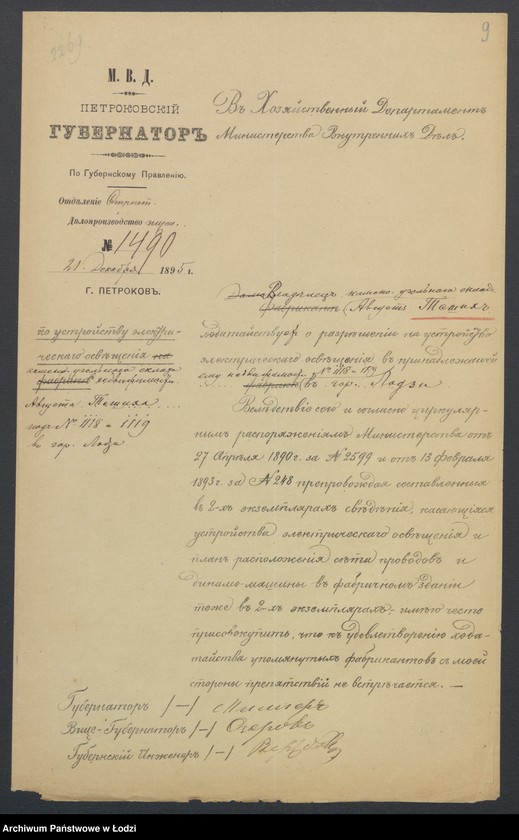 2269.
9
М. В. Д.
ПЕТРОКОВСКІЙ
ГУБЕРНАТОРЪ
По Губернскому Правленію.
Отдѣленіе Строит.
Дѣлопроизводство
№ 1490
21 Декабря 1895 г.
Г. ПЕТРОКОВЪ.
по устройству электри-
ческаго освѣщенія на
фабрикѣ недвижимости
Августа Ташиха
подъ № 1118 и 1119
въ гор. Лодзи
Въ Хозяйственный Департаментъ
Министерства Внутреннихъ Дѣлъ.
Владѣлецъ склада
фабрикантъ Августъ Ташихъ
ходатайствуетъ о разрѣшеніи на устройство
электрическаго освѣщенія въ принадлежащей
ему недвижимости № 1118 и 1119
фабрикѣ въ гор. Лодзи.
Вслѣдствіе сего и согласно циркуляр-
нымъ распоряженіямъ Министерства отъ
27 Апрѣля 1890 г. за № 2599 и отъ 13 февраля
1893 г. за № 248 препровождая составленныя
въ 2-хъ экземплярахъ свѣдѣнія, касающіяся
устройства электрическаго освѣщенія и
планъ расположенія сѣти проводовъ и
динамо-машины въ фабричномъ зданіи
тоже въ 2-хъ экземплярахъ,- имѣю честь
присовокупить, что къ удовлетворенію хода-
тайства упомянутыхъ фабрикантовъ съ моей
стороны препятствій не встрѣчается. —
Губернаторъ /—/ Миллеръ
Вице-Губернаторъ /—/ Озеровъ
Губернскій Инженеръ /—/
Archiwum Państwowe w Łodzi